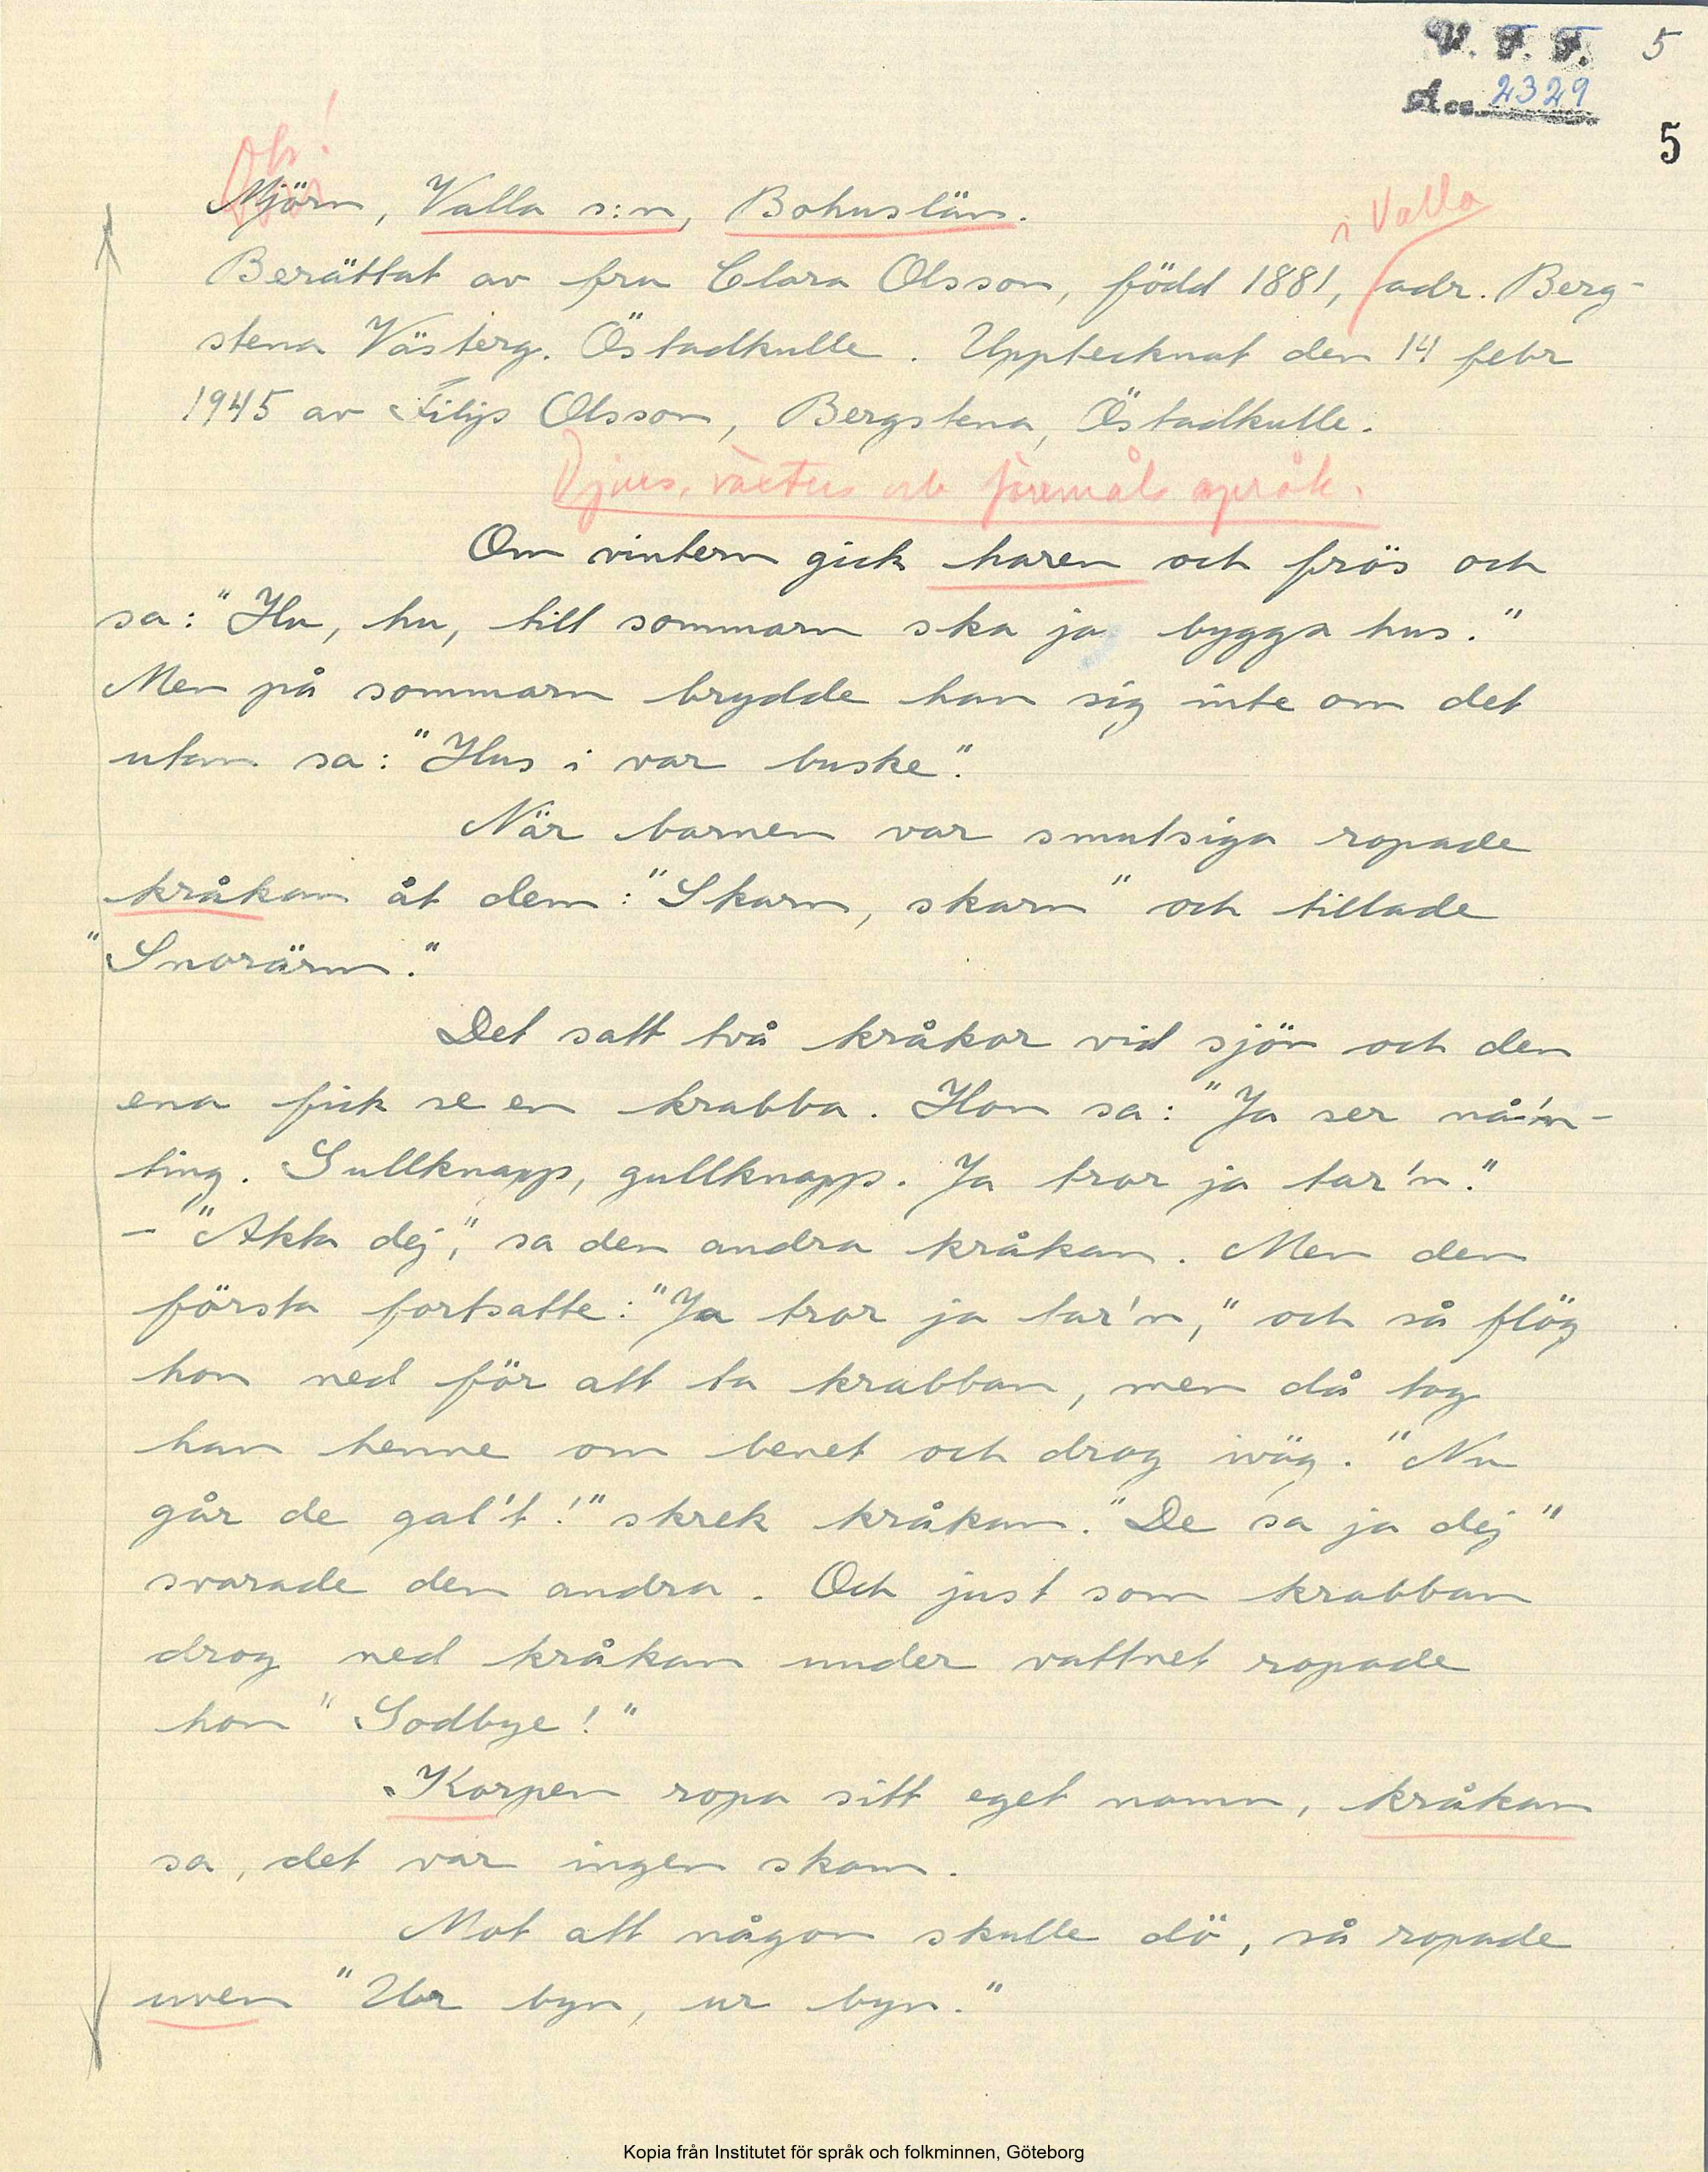 V. F. F. 5
Acc. 2329
5
Obs!
Mjörn, Valla s:n, Bohuslän.
i Valla
Berättat av fru Clara Olsson, född 1881, adr. Berg-
stena Västerg. Östadkulle. Upptecknat den 14 febr
1945 av Filip Olsson, Bergstena, Östadkulle.
Djurs, växters och föremåls språk.
Om vintern gick haren och frös och
sa: "Hu, hu, till sommarn ska ja bygga hus."
Men på sommarn brydde han sig inte om det
utan sa: "Hus i var buske".
När barnen var smutsiga ropade
kråkan åt dem: "Skarn, skarn" och tillade
"Snorärm."
Det satt två kråkor vid sjön och den
ena fick se en krabba. Hon sa: "Ja ser nå'n-
ting. Gullknapp, gullknapp. Ja tror ja tar'n."
- "Akta dej," sa den andra kråkan. Men den
första fortsatte: "Ja tror ja tar'n," och så flög
hon ned för att ta krabban, men då tog
han henne om benet och drog iväg. "Nu
går de gal't!" skrek kråkan. "De sa ja dej"
svarade den andra. Och just som krabban
drog ned kråkan under vattnet ropade
hon "Godbye!"
Korpen ropa sitt eget namn, kråkan
sa, det var ingen skam.
Mot att någon skulle dö, så ropade
uven "Ur byn, ur byn."
Kopia från Institutet för språk och folkminnen, Göteborg